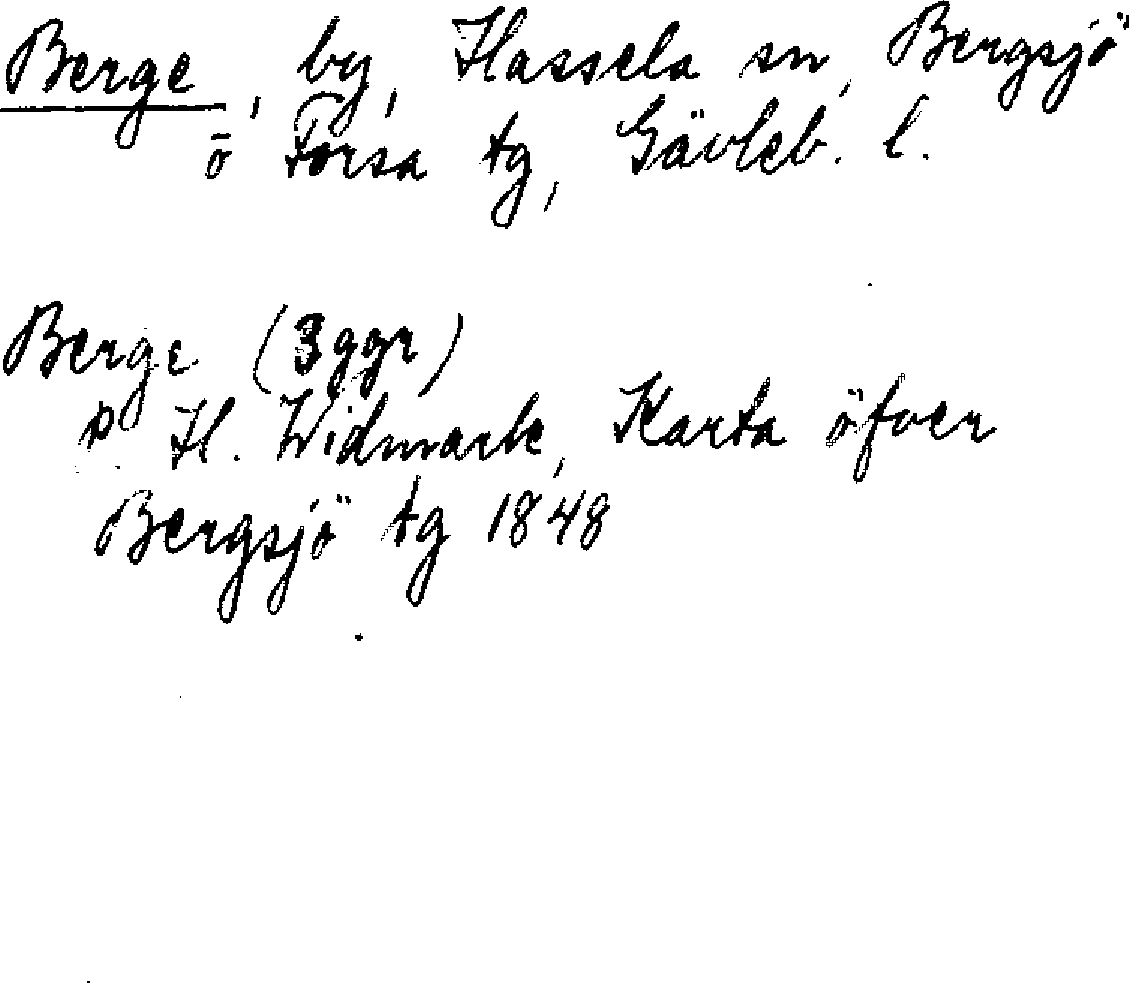 Berge, by, Hassela sn, Bergsjö
o Forsa tg, Gävleb. l.
Berge (3 ggr)
H. Widmark, Karta öfver
Bergsjö tg 1848